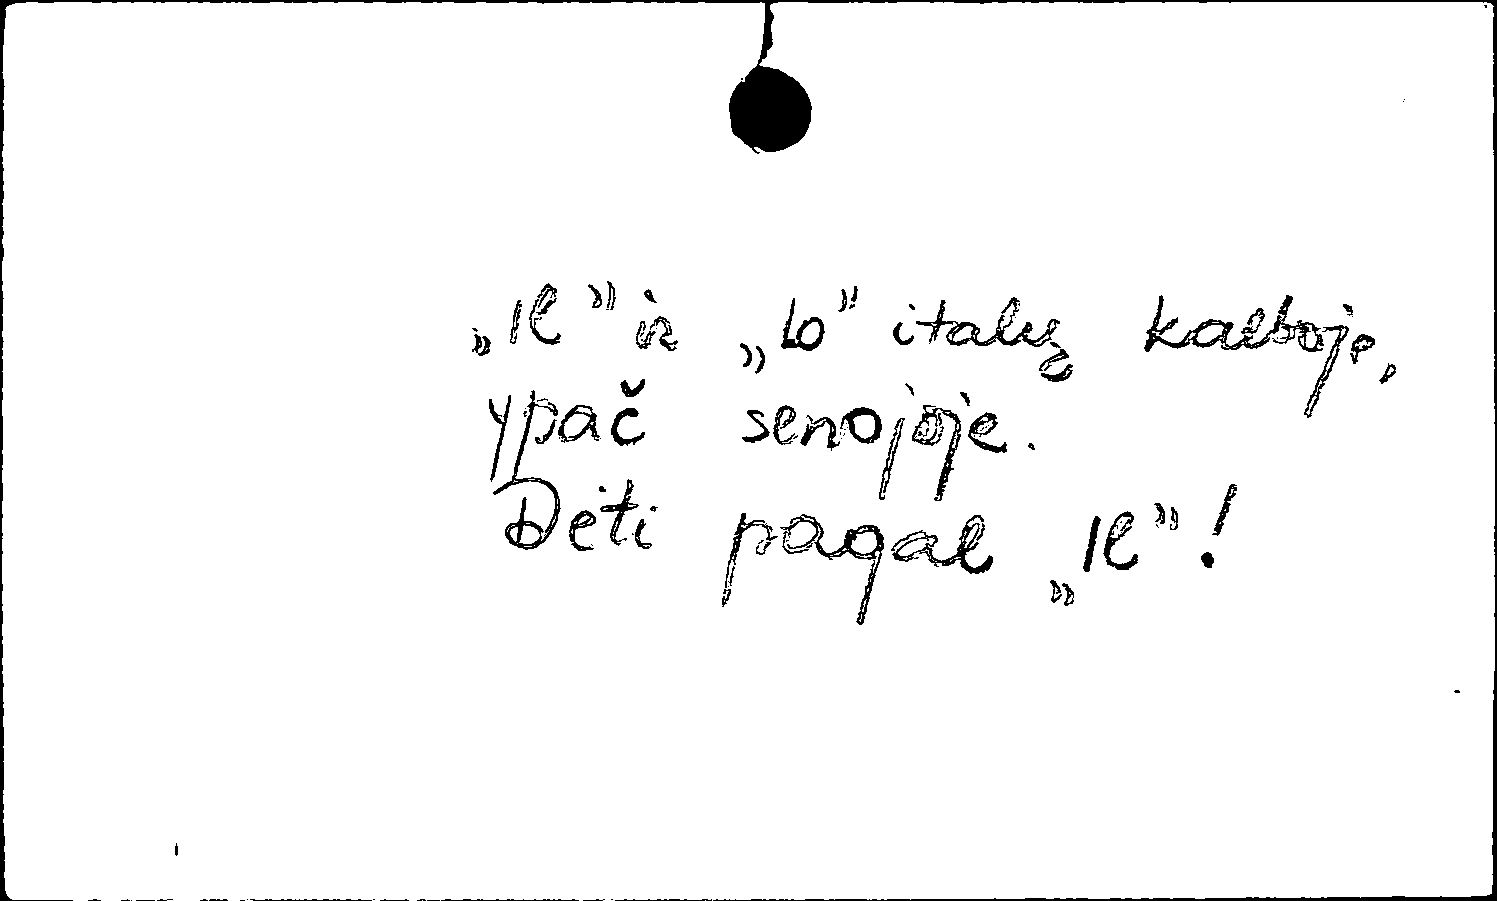 „Il” ir „Lo” italų kalboje,
ypač senojoje.
Dėti pagal „Il”!